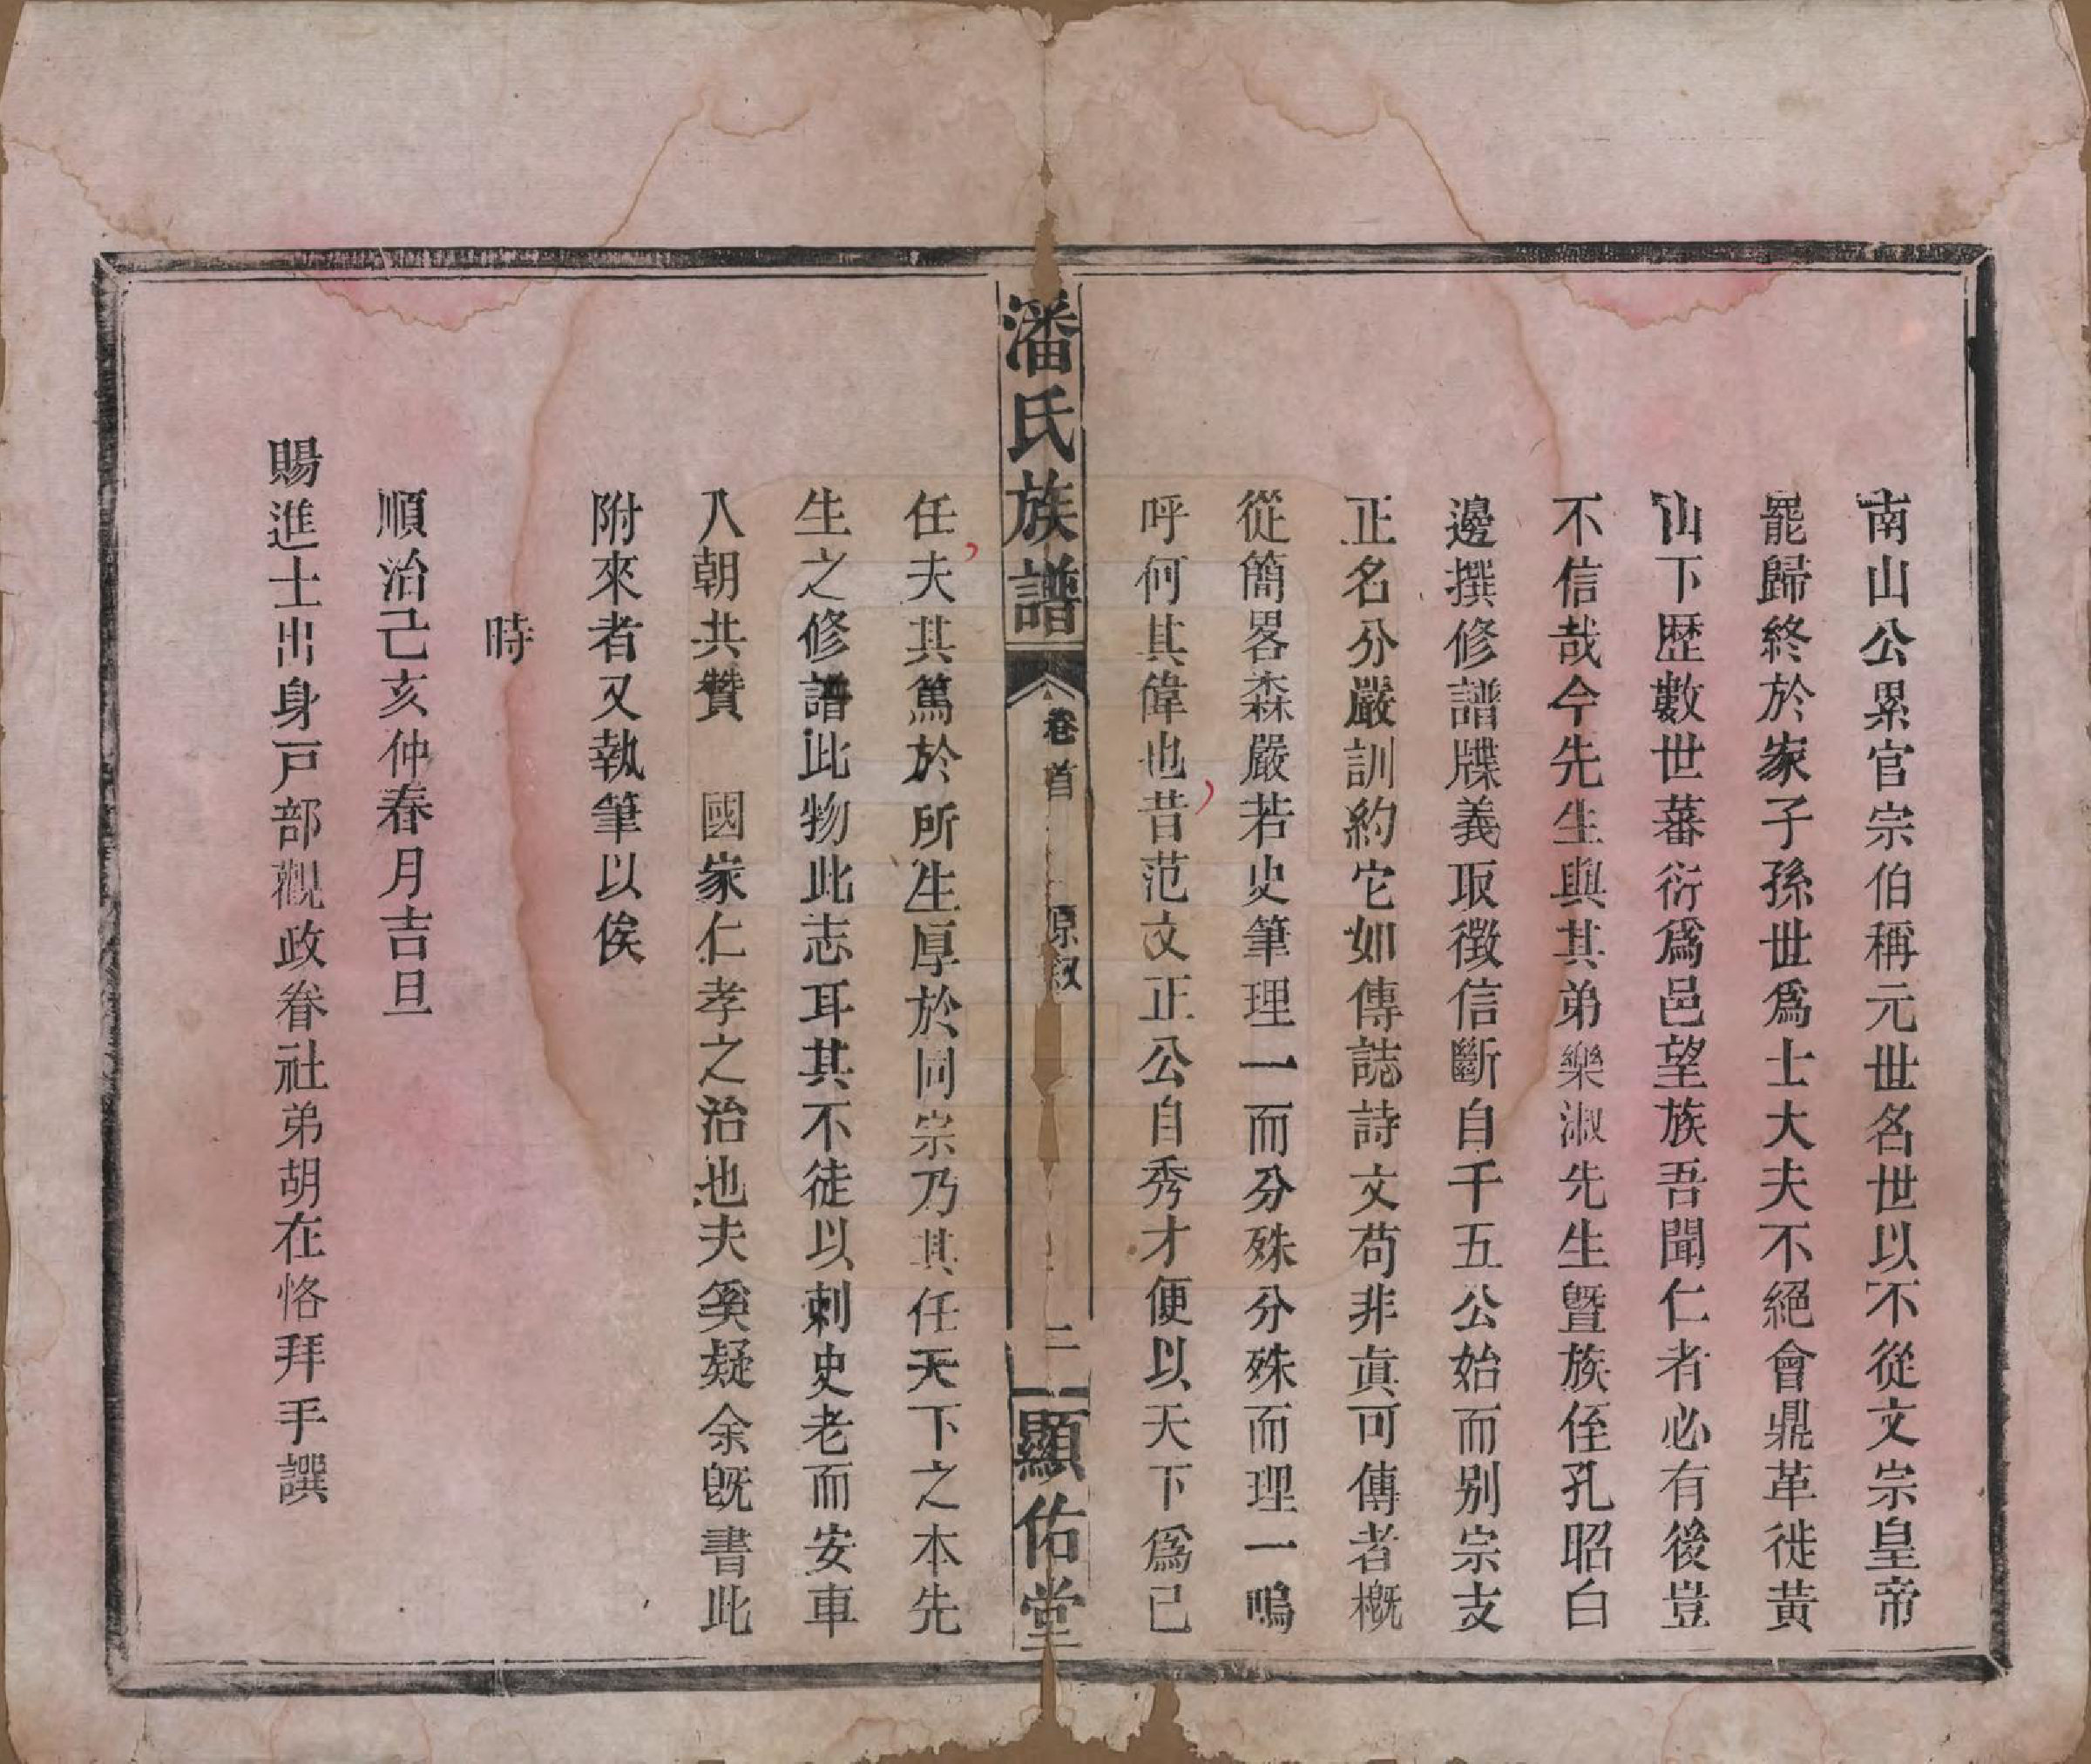 南山公累官宗伯稱元世名世以不從文宗皇帝
罷歸終於家子孫世爲士大夫不絕會鼎革徙黃
山下歷數世蕃衍爲邑望族吾聞仁者必有後豈
不信哉今先生與其弟樂淑先生暨族侄孔昭白
邊撰修譜牒義取徵信斷自千五公始而别宗支
正名分嚴訓約它如傳誌詩文苟非眞可傳者槪
從簡畧森嚴若史筆理一而分殊分殊而理一嗚
呼何其偉也昔范文正公自秀才便以天下爲已
潘氏族譜
卷首
原叙
二
顯佑堂
任夫其篤於所生厚於同宗乃其任天下之本先
生之修譜此物此志耳其不徒以刺史老而安車
入朝共贊 國家仁孝之治也夫奚疑余旣書此
附來者又執筆以俟
時
順治己亥仲春月吉旦
賜進士出身戸部觀政眷社弟胡在恪拜手譔